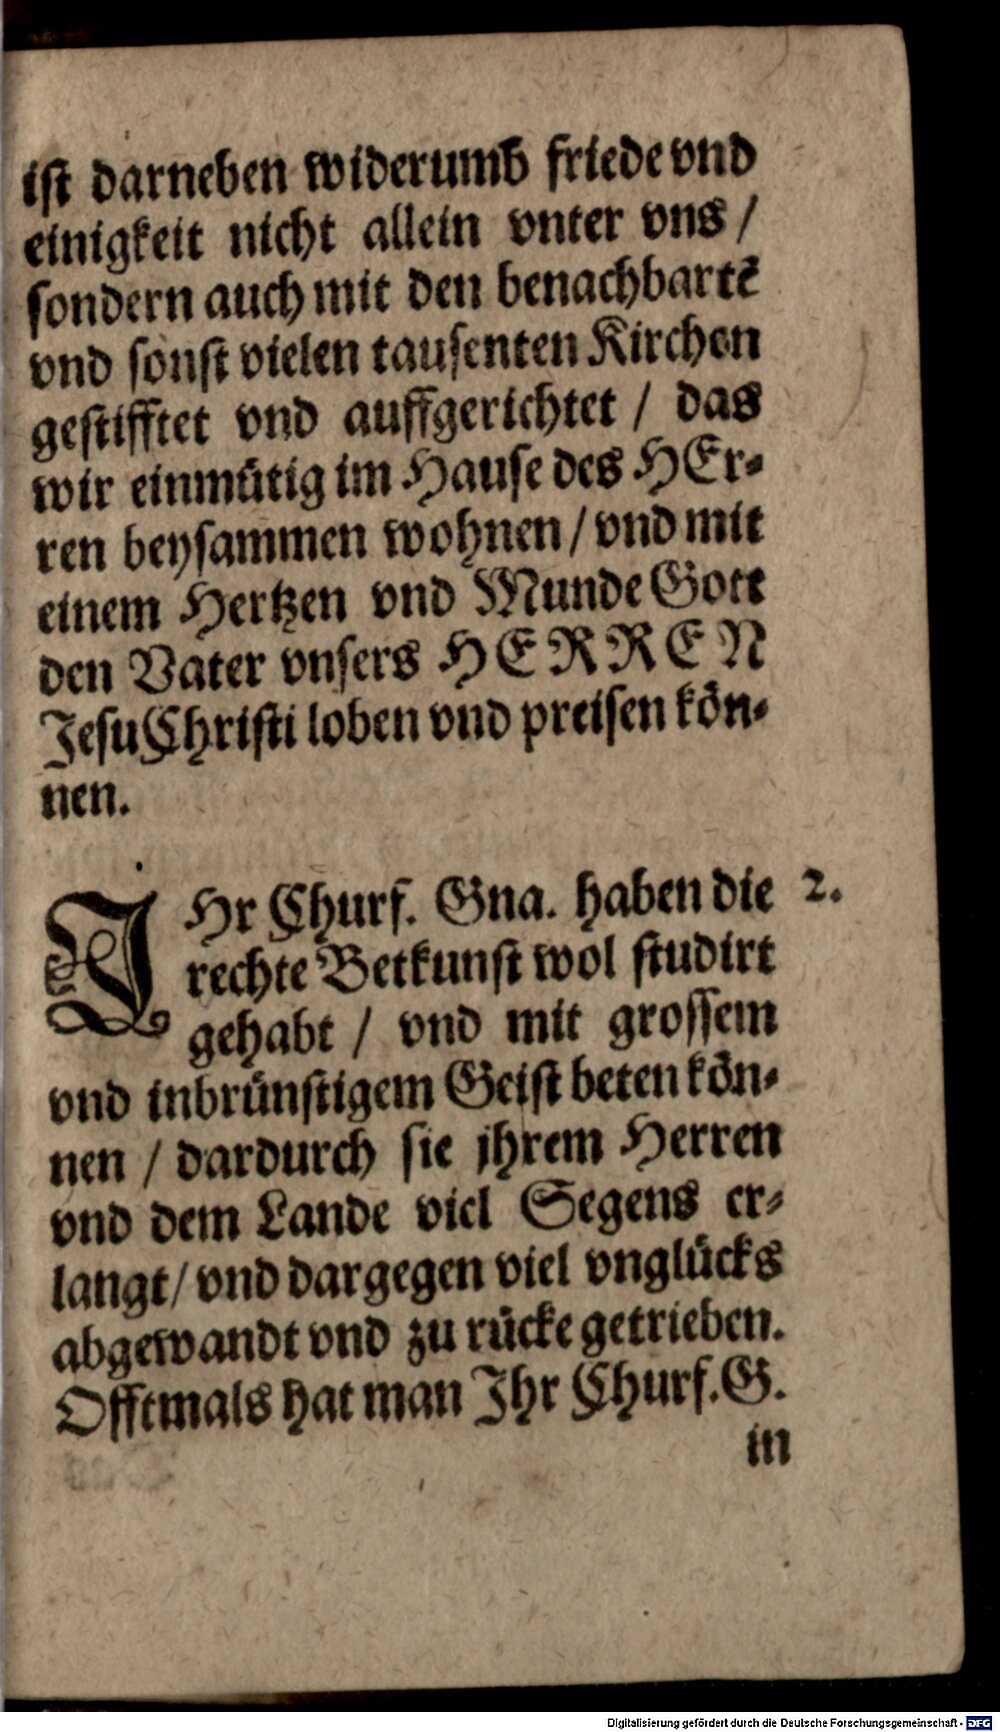 ist darneben widerumb friede vnd
einigkeit nicht allein vnter vns /
sondern auch mit den benachbartē
vnd sonst vielen tausenten Kirchen
gestifftet vnd auffgerichtet / das
wir einmütig im Hause des HEr-
ren beysammen wohnen / vnd mit
einem Hertzen vnd Munde Gott
den Vater vnsers HERREN
Jesu Christi loben vnd preisen kön-
nen.
JHr Churf. Gna. haben die 2.
rechte Betkunst wol studirt
gehabt / vnd mit grossem
vnd inbrünstigem Geist beten kön-
nen / dardurch sie jhrem Herren
vnd dem Lande viel Segens er-
langt / vnd dargegen viel vnglücks
abgewandt vnd zu rücke getrieben.
Offtmals hat man Jhr Churf. G.
in
Digitalisierung gefördert durch die Deutsche Forschungsgemeinschaft - DFG